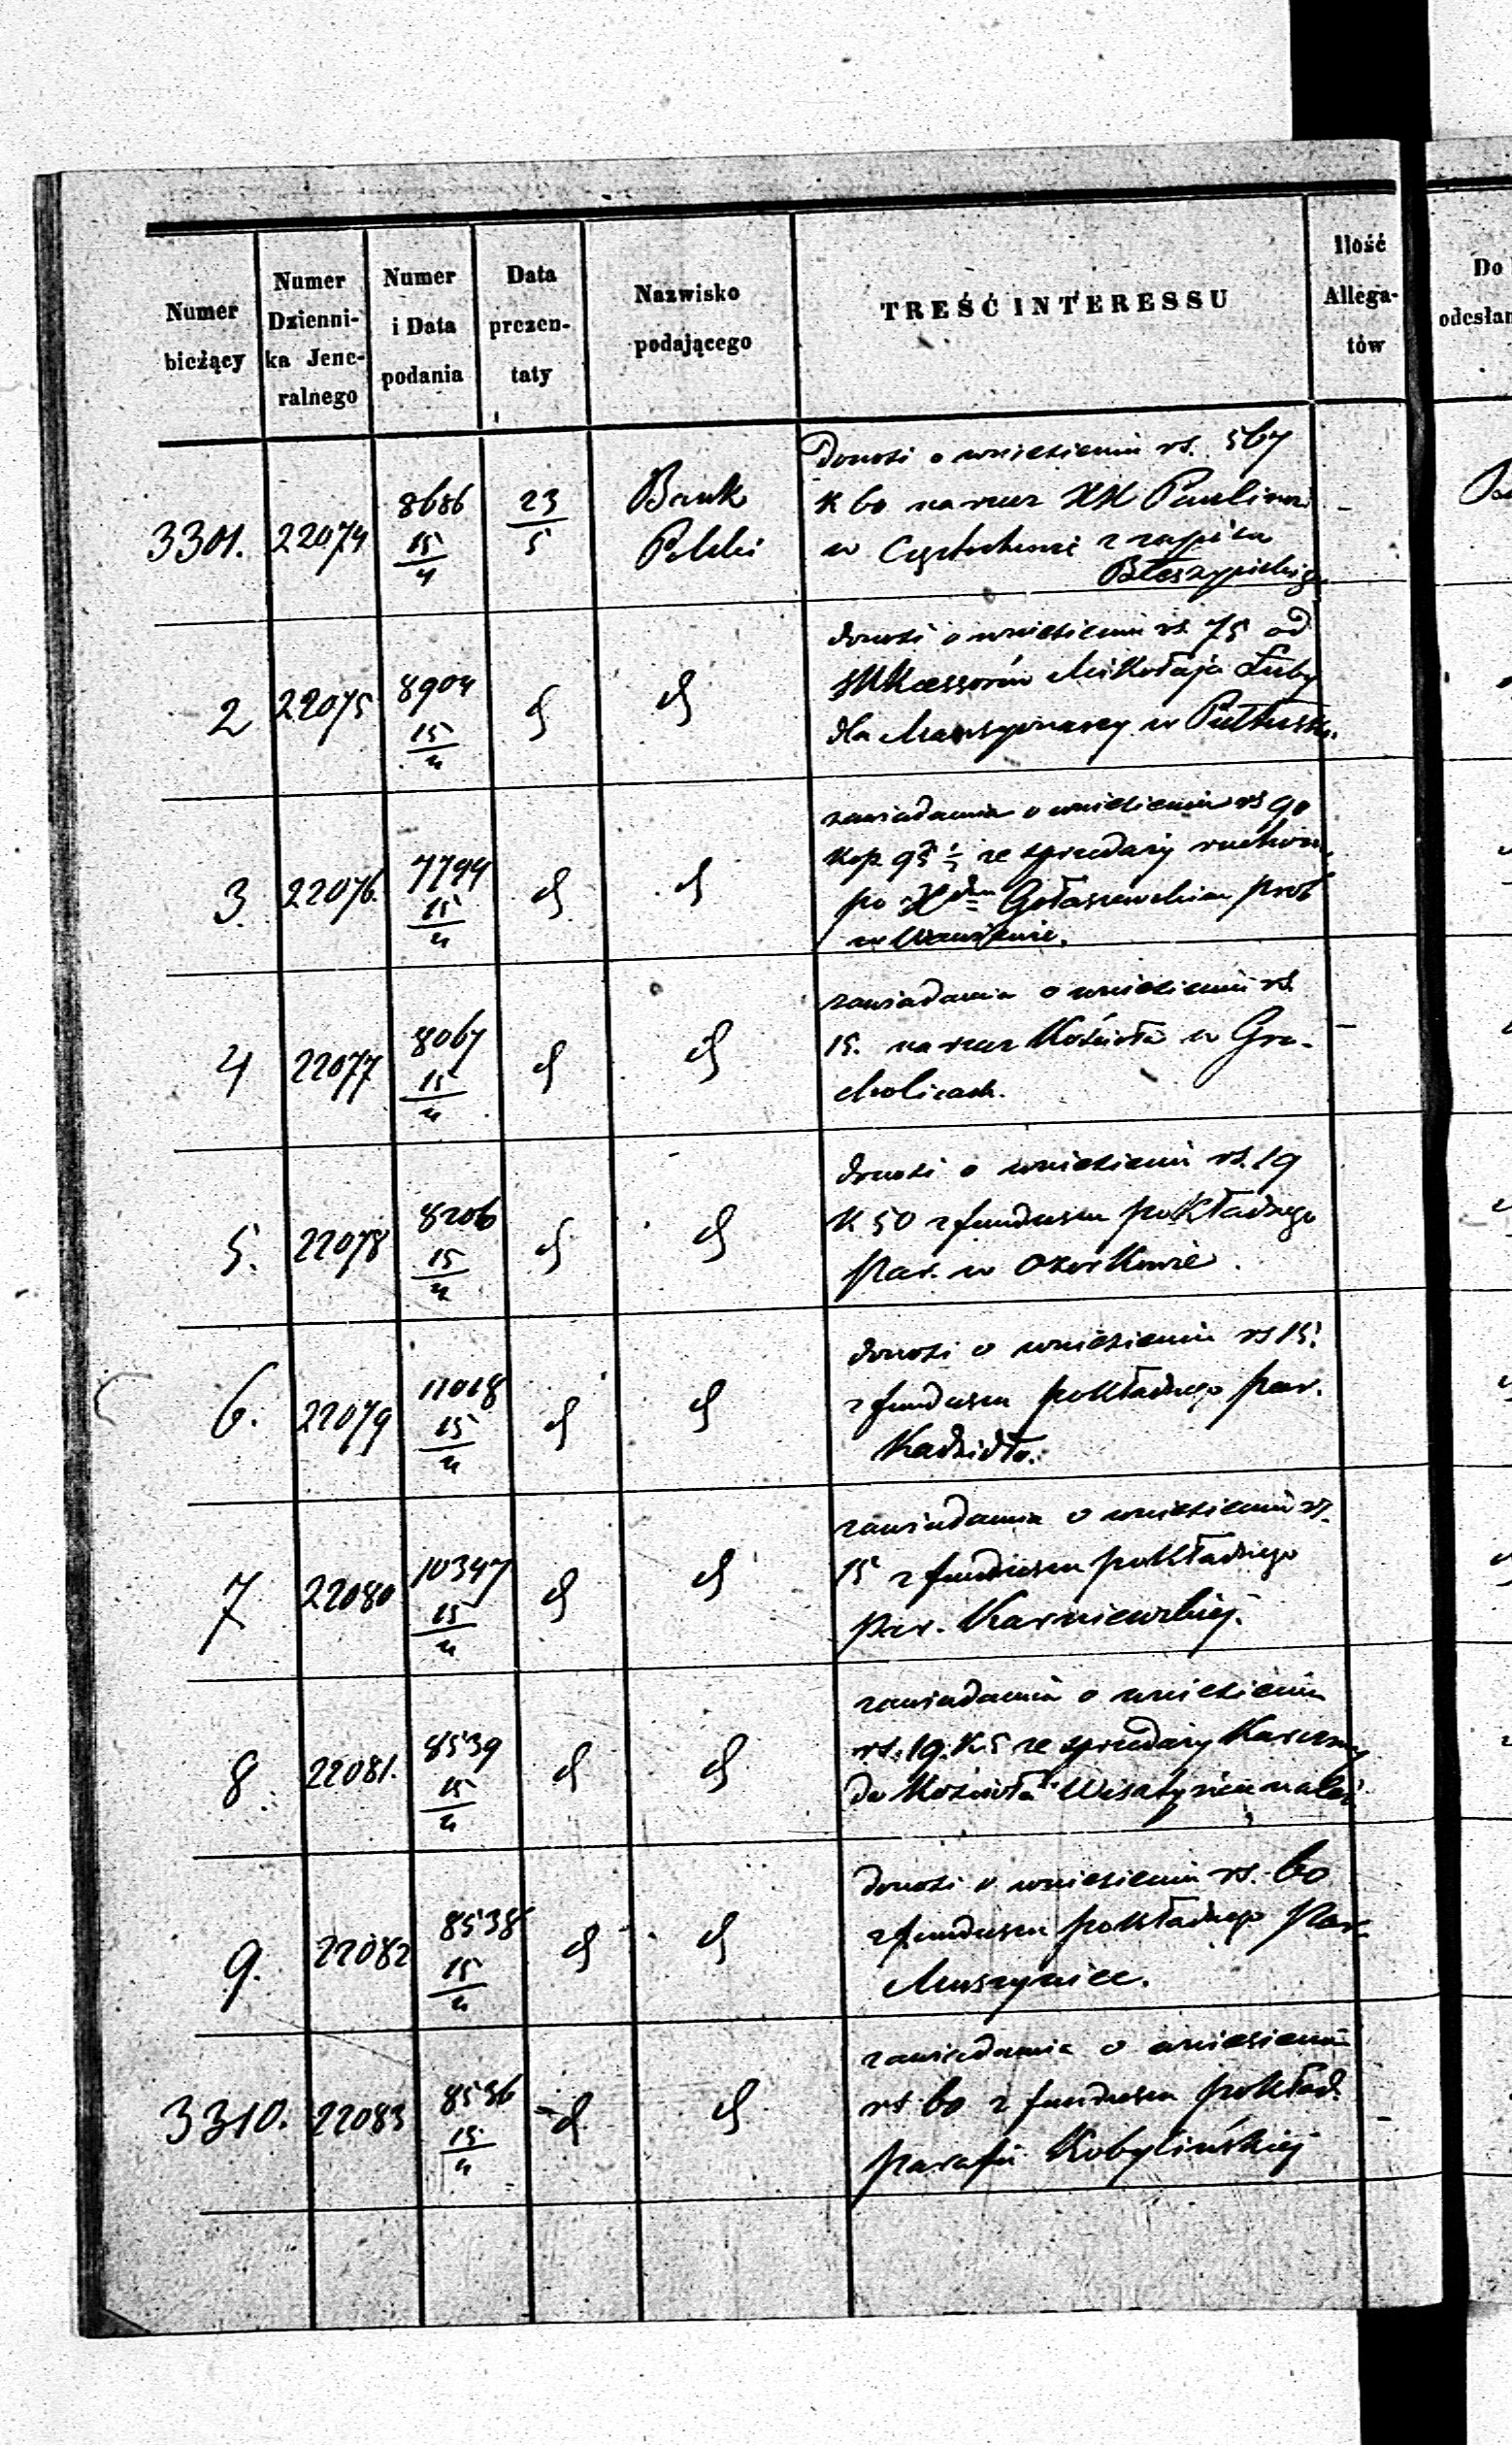 Numer bieżący
Numer Dzienni-ka Jene-ralnego
Numer i Data podania
Data prezen-taty
Nazwisko podającego
TREŚĆ INTERESSU
Ilość Allega-tów
Do
odesłan
3301. 22074 8686 15/4 23/5 Bank Polski
donosi o wniesieniu rs. 567
K 60 na rzecz XX Paulinów
w Częstochowie z zapisu
2 22075 8904 15/4 d d
donosi o wniesieniu rs. 75 od
sukcessorów Mikołaja Łuby
dla Mansyonarzy w Pułtusku.
3. 22076. 7794 15/4 d d
zawiadamia o wniesieniu rs 90
Kop. 95 ½ ze sprzedaży ruchom.
po Gołaszewskim prob
w
4 22077 8067 15/4 d d
zawiadamia o wniesieniu rs.
15. na rzecz Kościoła w Gro-
cholicach.
5. 22078 8206 15/4 d d
donosi o wniesieniu rs. 19
K 50 z funduszu pokładnego
par. w Ozorkowie.
6. 22079 11018 15/4 d d
donosi o wniesieniu rs 15.
z funduszu pokładnego par.
Kadzidło.
7 22080 10347 15/4 d d
zawiadamia o wniesieniu rs.
15 z funduszu pokładnego
par. Karniewskiej.
8. 22081. 8539 15/4 d d
zawiadamia o wniesieniu
rs. 19. K. 5 ze sprzedaży Karczmy
do Kościoła
9. 22082 8538 15/4 d d
donosi o wniesieniu rs. 60
z funduszu pokładnego Par.
Myszyniec.
3310. 22083 8536 15/4 d d
zawiadamia o wniesieniu
rs 60 z funduszu pokład.
parafii Kobylińskiej